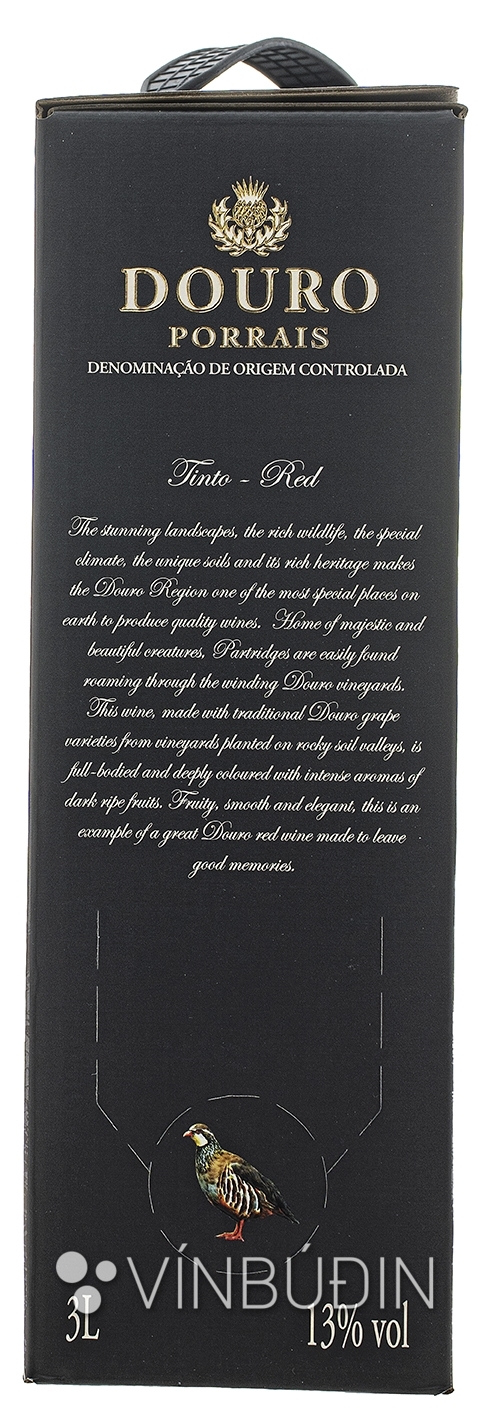 DOURO
PORRAIS
DENOMINAÇÃO DE ORIGEM CONTROLADA
Tinto - Red
The stunning landscapes, the rich wildlife, the special
climate, the unique soils and its rich heritage makes
the Douro Region one of the most special places on
earth to produce quality wines. Home of majestic and
beautiful creatures, Partridges are easily found
roaming through the winding Douro vineyards.
This wine, made with traditional Douro grape
varieties from vineyards planted on rocky soil valleys, is
full-bodied and deeply coloured with intense aromas of
dark ripe fruits. Fruity, smooth and elegant, this is an
example of a great Douro red wine made to leave
good memories.
VÍNBÚÐIN
3L 13% vol